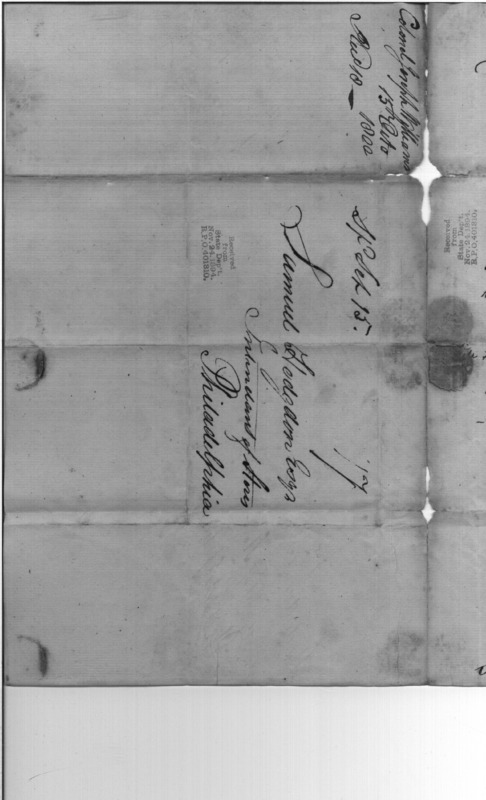 Colonel Joseph Williams
15th Octo
Recd 18 — 1800
Sp Sex 15.
17
Samuel Hodgdon Esqr
Intendant of Stores
Philadelphia
Received
from
State Dep't.
Nov. 24, 1894.
R.P.O. 401810.
Received
from
State Dep't.
Nov. 24, 1894.
R.P.O. 401810.